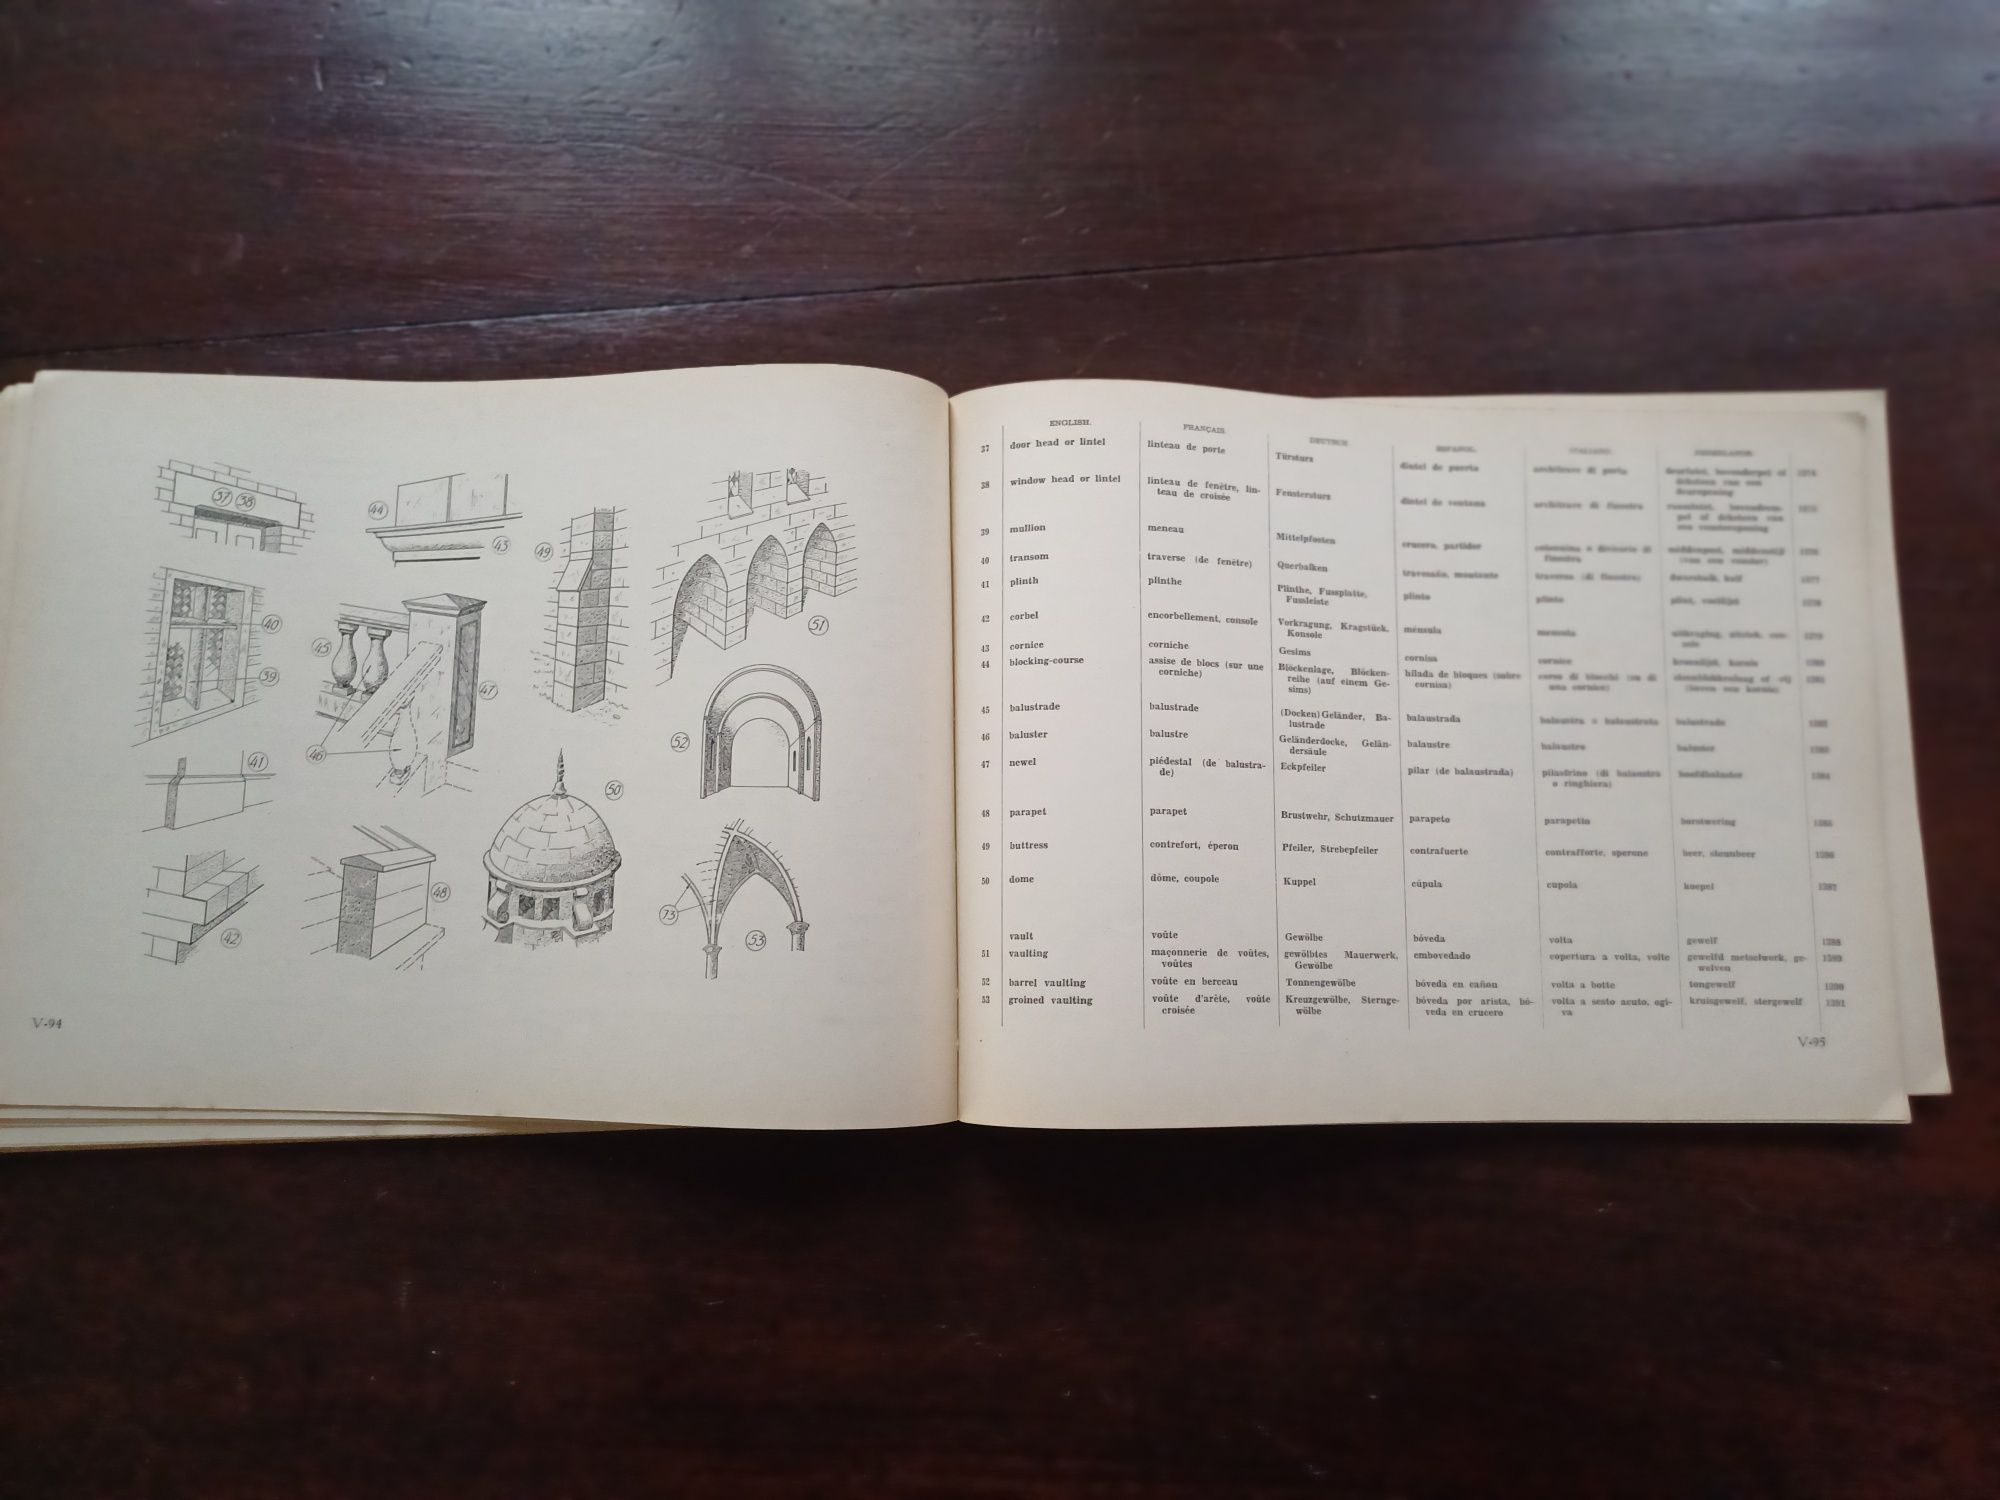 37 38
44
43
49
51
40
39
45
47
46
52
41
50
42
48
73
53
V-94
ENGLISH. FRANÇAIS. DEUTSCH ESPAÑOL. ITALIANO.
37 door head or lintel linteau de porte Türsturz dintel de puerta architrave di porta
38 window head or lintel linteau de fenêtre, lin- Fenstersturz dintel de ventana architrave di finestra
teau de croisée
39 mullion meneau Mittelpfosten crucero, partidor
40 transom traverse (de fenêtre) Querbalken traversaño, montante traversa (di finestra)
41 plinth plinthe Plinthe, Fussplatte, plinto plinto
Fussleiste
42 corbel encorbellement, console Vorkragung, Kragstück, ménsula mensola
Konsole
43 cornice corniche Gesims cornisa cornice
44 blocking-course assise de blocs (sur une Blöckenlage, Blöcken- hilada de bloques (sobre
corniche) reihe (auf einem Ge- cornisa)
sims)
45 balustrade balustrade (Docken) Geländer, Ba- balaustrada balaustra o balaustrata balustrade
lustrade
46 baluster balustre Geländerdocke, Gelän- balaustre balaustro baluster
dersäule
47 newel piédestal (de balustra- Eckpfeiler pilar (de balaustrada) pilastrino (di balaustra hoofdbaluster
de) o ringhiera)
48 parapet parapet Brustwehr, Schutzmauer parapeto parapetto borstwering
49 buttress contrefort, éperon Pfeiler, Strebepfeiler contrafuerte contrafforte, sperone beer, steunbeer 1386
50 dome dôme, coupole Kuppel cúpula cupola koepel 1387
vault voûte Gewölbe bóveda volta gewelf 1388
51 vaulting maçonnerie de voûtes, gewölbtes Mauerwerk, embovedado copertura a volta, volte gewelfd metselwerk, ge- 1389
voûtes Gewölbe welven
52 barrel vaulting voûte en berceau Tonnengewölbe bóveda en cañon volta a botte tongewelf 1390
53 groined vaulting voûte d'arête, voûte Kreuzgewölbe, Sternge- bóveda por arista, bó- volta a sesto acuto, ogi- kruisgewelf, stergewelf 1391
croisée wölbe veda en crucero va
V-95